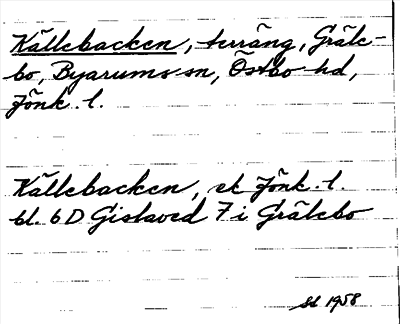 Källebacken, terräng, Gräle-
bo, Byarums sn, Östbo hd,
Jönk. l.
Källebacken, ek Jönk. l.
bl. 6 D Gislaved 7 i Grälebo
1958